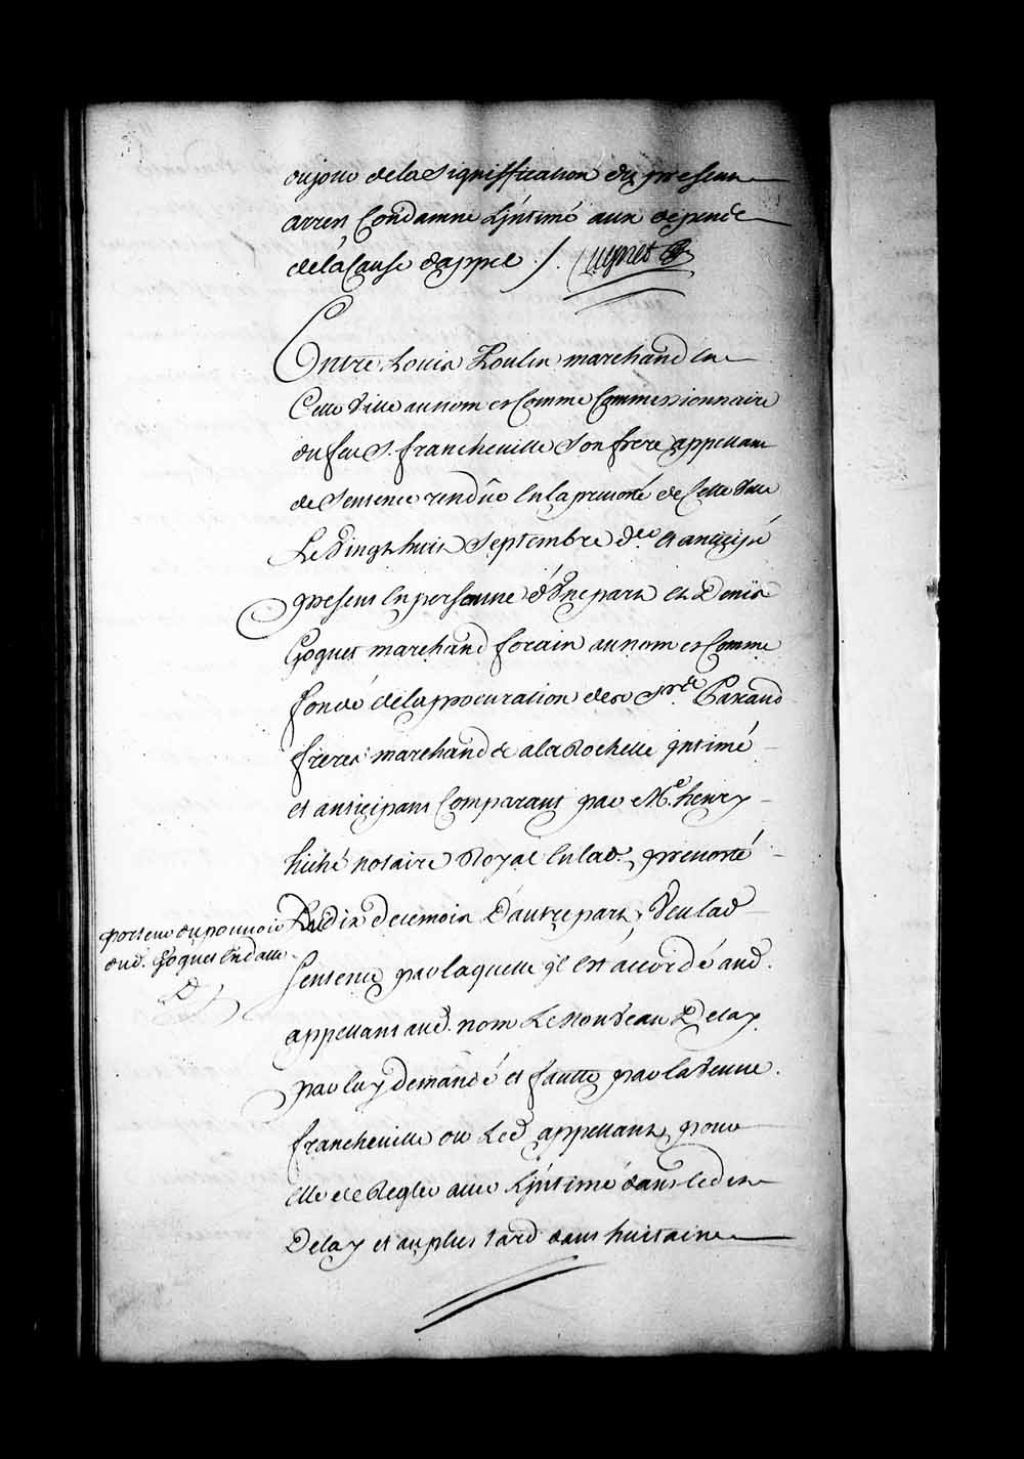 du jour de la Signiffication du present
arrest Condamne L'jntimé aux depends
de la Cause d'appel ./. Cugnet
Entre Louis Poulin marchand en
Cette Ville au nom et Comme Commissionnaire
du feu S. francheville Son frere appellant
de Sentence rendüe en la prevosté de Cette Ville
Le Vingt huit Septembre der. et anticipé
present en personne d'Une part et Denis
Goguet marchand forain au nom et Comme
fondé de la procuration des Srs.
freres marchands a la Rochelle jntimé
et anticipant Comparant par Me. henry
hiché notaire Royal en lad. prevosté
porteur du pouvoir
dud. Goguet en datte
Du dix de ce mois D'autre part, Veu lad
Sentence par laquelle jl est accordé aud.
appellant aud. nom Le nouveau Delay
par luy demandé et fautte par la Veuve
francheville ou Led. appellant pour
elle de Regler avec L'jntimé dans led.
Delay et au plus tard dans huitaine